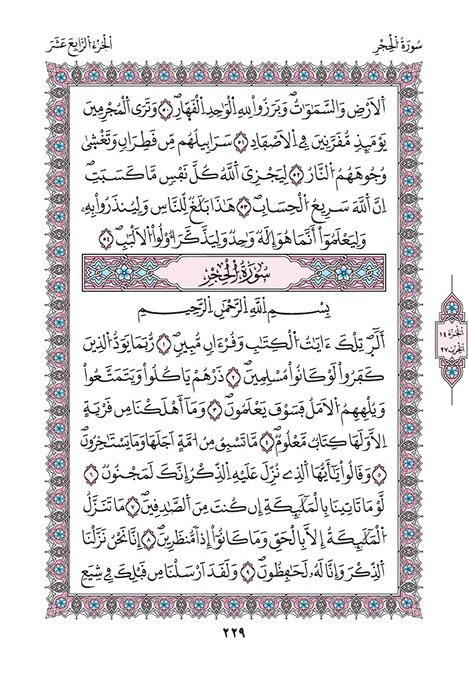 سُورَةُ الْحِجْرِ
الْجُزْءُ الرَّابِعَ عَشَرَ
اَ۬لْأَرْضِ وَالسَّمَٰوَٰتُۖ وَبَرَزُواْ لِلهِ اِ۬لْوَٰحِدِ اِ۬لْقَهّ۪ارِۖ ٥٠ وَتَرَى اَ۬لْمُجْرِمِينَ
يَوْمَئِذٖ مُّقَرَّنِينَ فِے اِ۬لْأَصْفَادِۖ ٥١ سَرَابِيلُهُم مِّن قَطِرَانٖ وَتَغْش۪ىٰ
وُجُوهَهُمُ اُ۬لنَّارُۖ ٥٢ لِيَجْزِيَ اَ۬للَّهُ كُلَّ نَفْسٖ مَّا كَسَبَتِۖ
اِنَّ اَ۬للَّهَ سَرِيعُ اُ۬لْحِسَابِۖ ٥٣ هَٰذَا بَلَٰغٞ لِّلنَّاسِ وَلِيُنذَرُواْ بِهِۦ
وَلِيَعْلَمُوٓاْ أَنَّمَا هُوَ إِلَٰهٞ وَٰحِدٞ وَلِيَذَّكَّرَ أُوْلُواْ اُ۬لْأَلْبَٰبِۖ ٥٤
سُورَةُ الْحِجْرِ
بِسْمِ اِ۬للَّهِ اِ۬لرَّحْمَٰنِ اِ۬لرَّحِيمِ
أَلَٓر۪ۖ تِلْكَ ءَايَٰتُ اُ۬لْكِتَٰبِ وَقُرْءَانٖ مُّبِينٖۖ ١ رُّبَمَا يَوَدُّ اُ۬لذِينَ
كَفَرُواْ لَوْ كَانُواْ مُسْلِمِينَۖ ٢ ذَرْهُمْ يَاكُلُواْ وَيَتَمَتَّعُواْ
وَيُلْهِهِمُ اُ۬لْأَمَلُ فَسَوْفَ يَعْلَمُونَۖ ٣ وَمَآ أَهْلَكْنَا مِن قَرْيَةٍ
اِلَّا وَلَهَا كِتَابٞ مَّعْلُومٞۖ ٤ مَّا تَسْبِقُ مِنُ ا۟مَّةٍ اَجَلَهَا وَمَا يَسْتَٰخِرُونَۖ
٥ وَقَالُواْ يَٰٓأَيُّهَا اَ۬لذِے نُزِّلَ عَلَيْهِ اِ۬لذِّكْرُ إِنَّكَ لَمَجْنُونٞۖ ٦
لَّوْ مَا تَاتِينَا بِالْمَلَٰٓئِكَةِ إِن كُنتَ مِنَ اَ۬لصَّٰدِقِينَۖ ٧ مَا تَنَزَّلُ
اُ۬لْمَلَٰٓئِكَةُ إِلَّا بِالْحَقِّ وَمَا كَانُوٓاْ إِذاٗ مُّنظَرِينَۖ ٨ إِنَّا نَحْنُ نَزَّلْنَا
اَ۬لذِّكْرَ وَإِنَّا لَهُۥ لَحَٰفِظُونَۖ ٩ وَلَقَدَ اَرْسَلْنَا مِن قَبْلِكَ فِے شِيَعِ
الجزء ١٤
الحزب ٢٧
٢٢٩